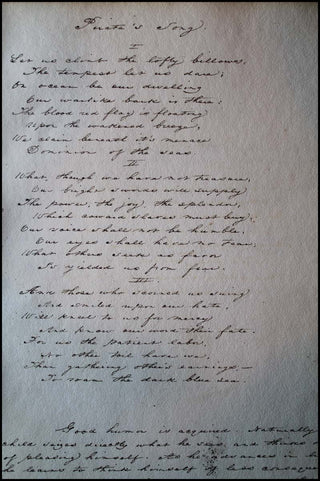 Pirate's Song.
I
Let us climb the lofty billows,
The tempest let us dare;
On ocean be our dwelling
Our warlike bark is there:
The blood red flag is floating
Upon the wakened breeze,
We claim beneath it's menace
Dominion of the seas.
II
What, though we have not treasure,
Our bright swords will supply
The power, the joy, the splendor,
Which coward slaves must buy;
Our voice shall not be humble,
Our eyes shall have no tear;
What others seek as favor
Is yielded us from fear.
III
And those who scorned us suing
And smiled upon our hate,
Will kneel to us for mercy
And know our word their fate.
For us the patient labor,
No other toil have we,
Than gathering other's earnings,—
To roam the dark blue sea.
Good humor is acquired. Naturally
child says directly what he sees and thinks
of pleasing himself. As he advances in
he learns to think himself of less consequ